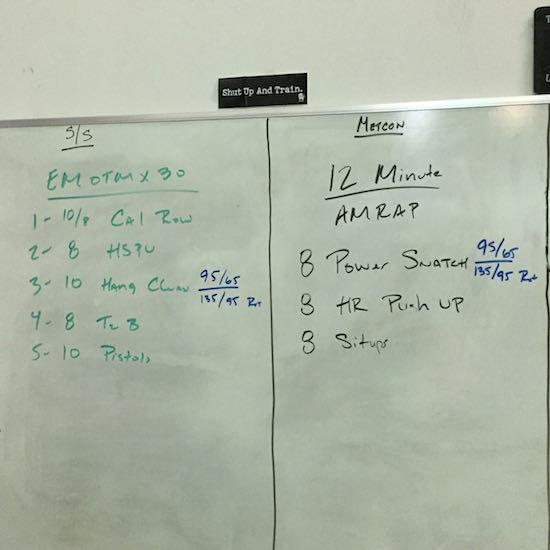 Shut Up And Train.
S/S
EMOTM x 30
1- 10/8 Cal Row
2- 8 HSPU
3- 10 Hang Clean 95/65
135/95 Rx+
4- 8 T2B
5- 10 Pistols
METCON
12 Minute
AMRAP
8 Power Snatch 95/65
135/95 Rx+
8 HR Push UP
8 Situps